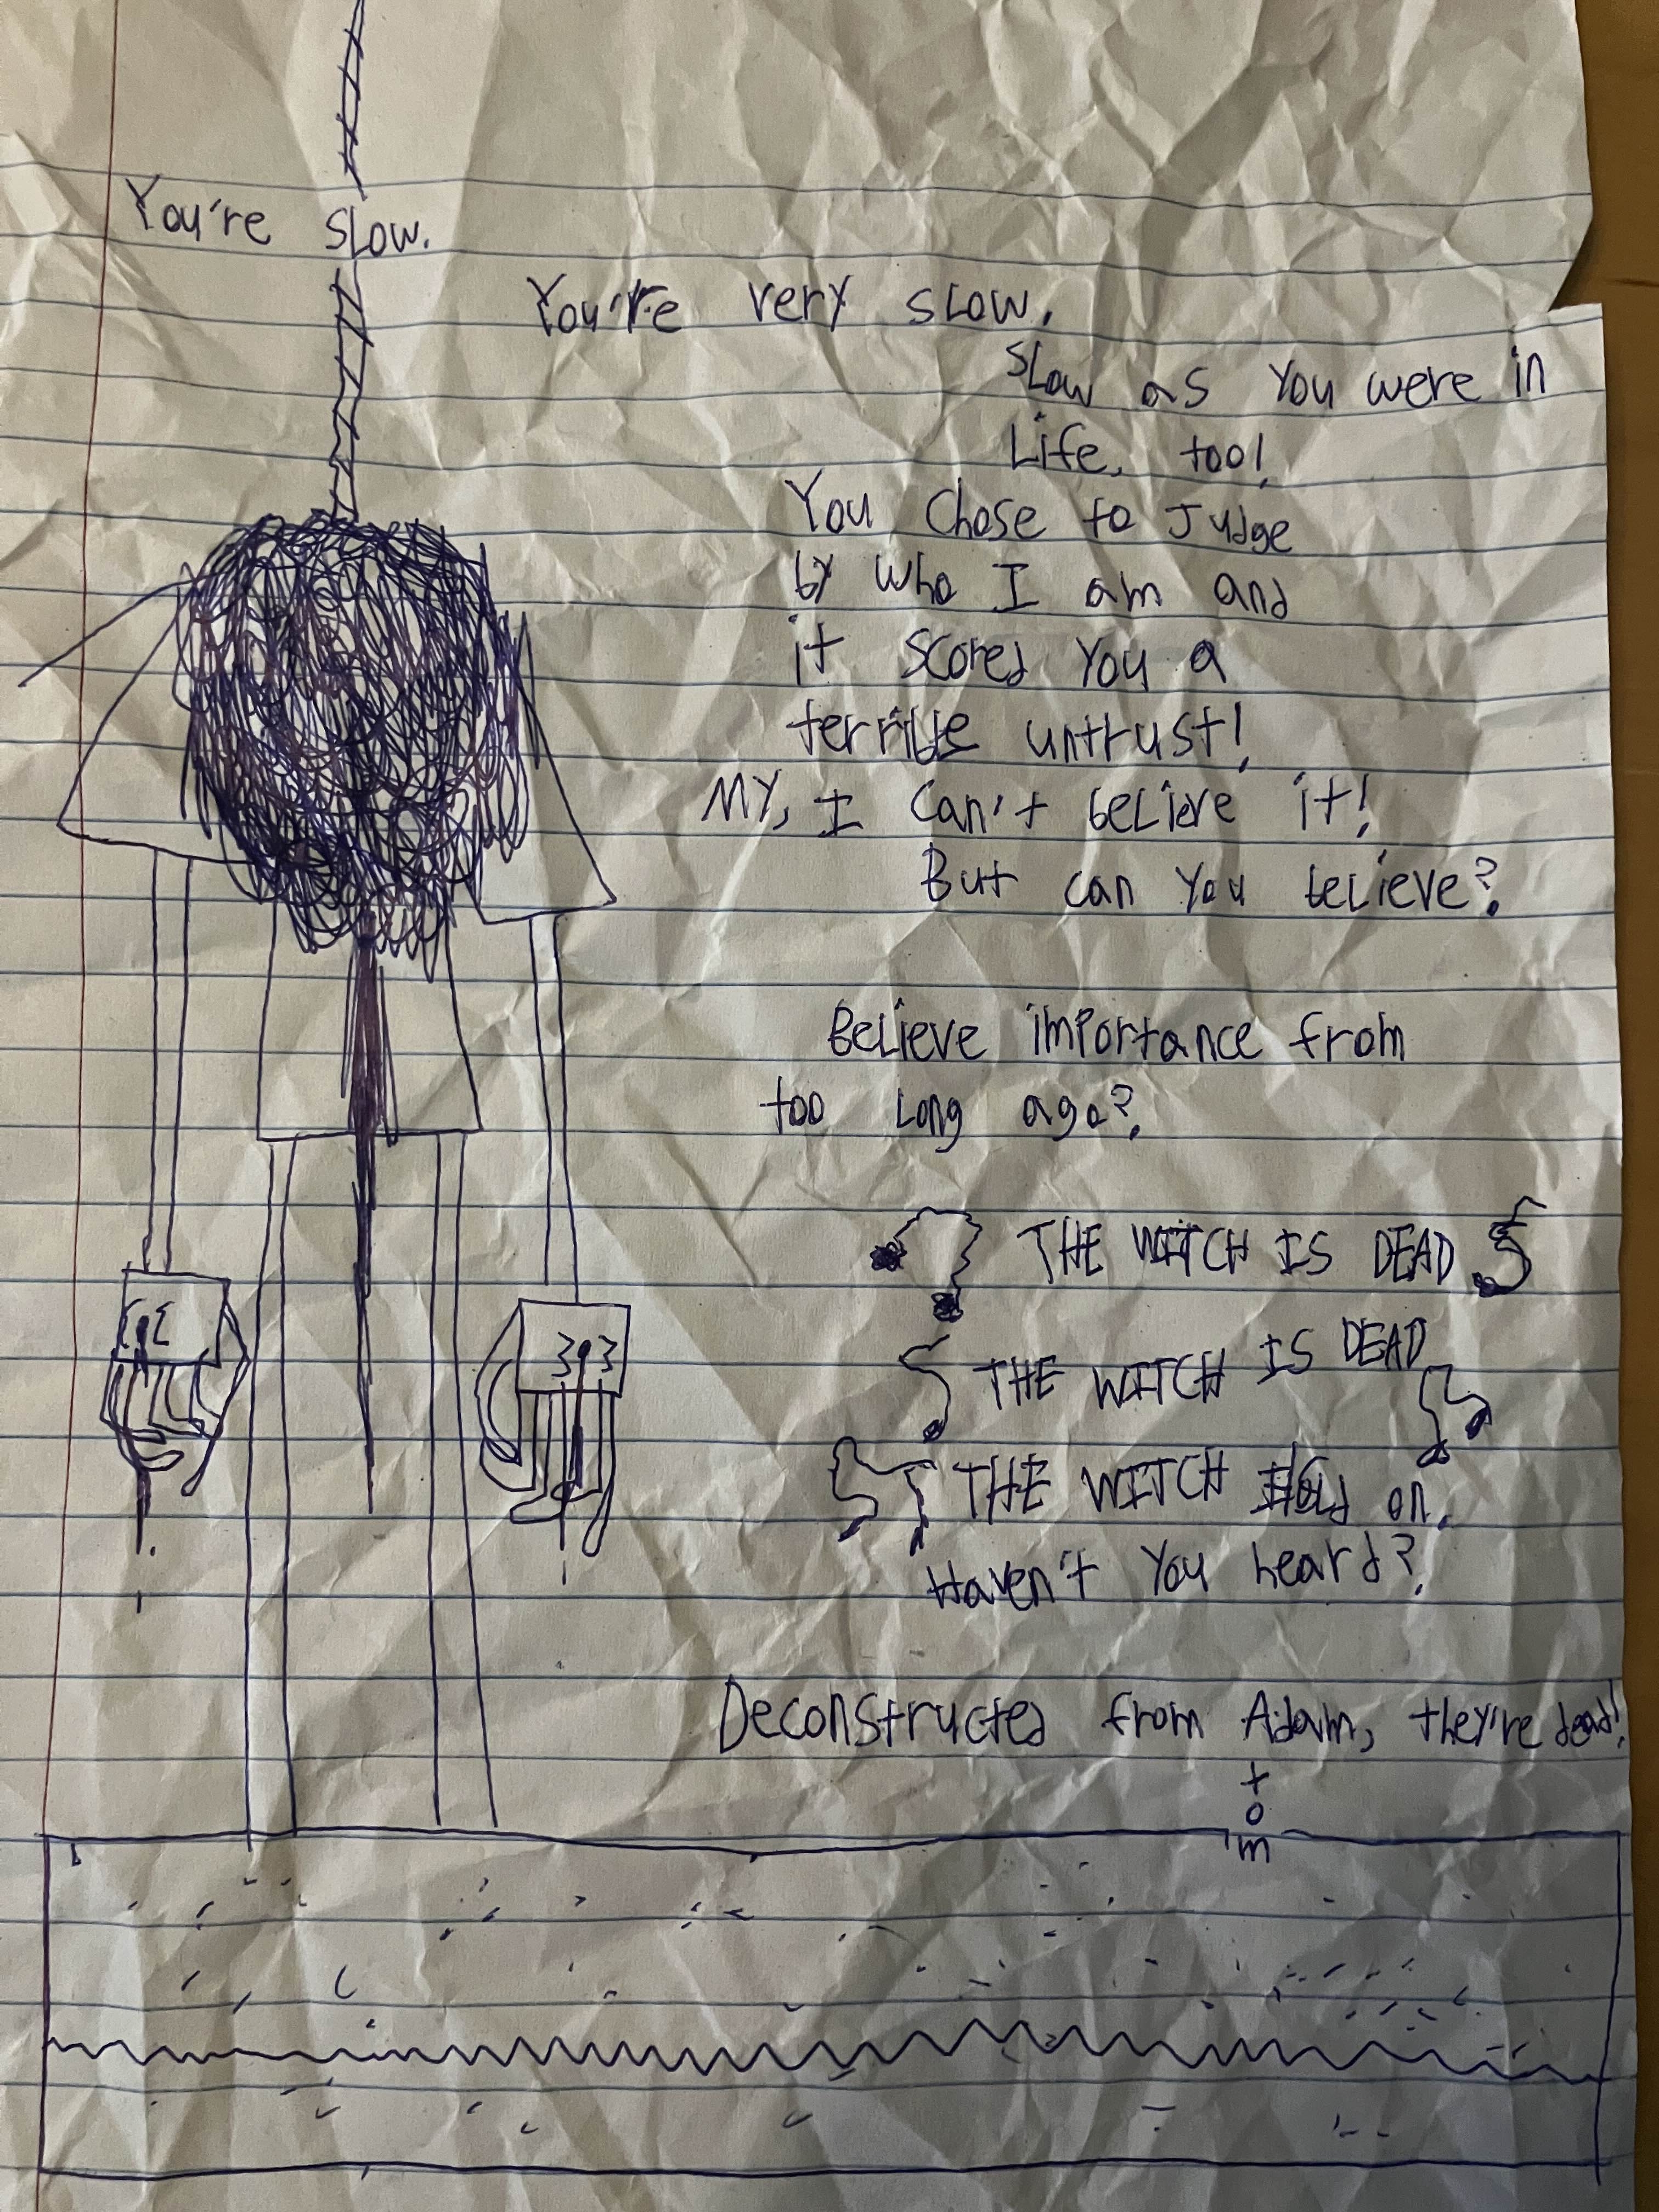 You're slow.
You're very slow.
Slow as you were in
Life, too!
You chose to Judge
by who I am and
it scored you a
terrible untrust!
MY, I can't believe it!
But can you believe?
Believe importance from
too long ago?
THE WITCH IS DEAD
THE WITCH IS DEAD
THE WITCH Hold on.
Haven't you heard?
Deconstructed from Adam, they're dead!
t
o
m